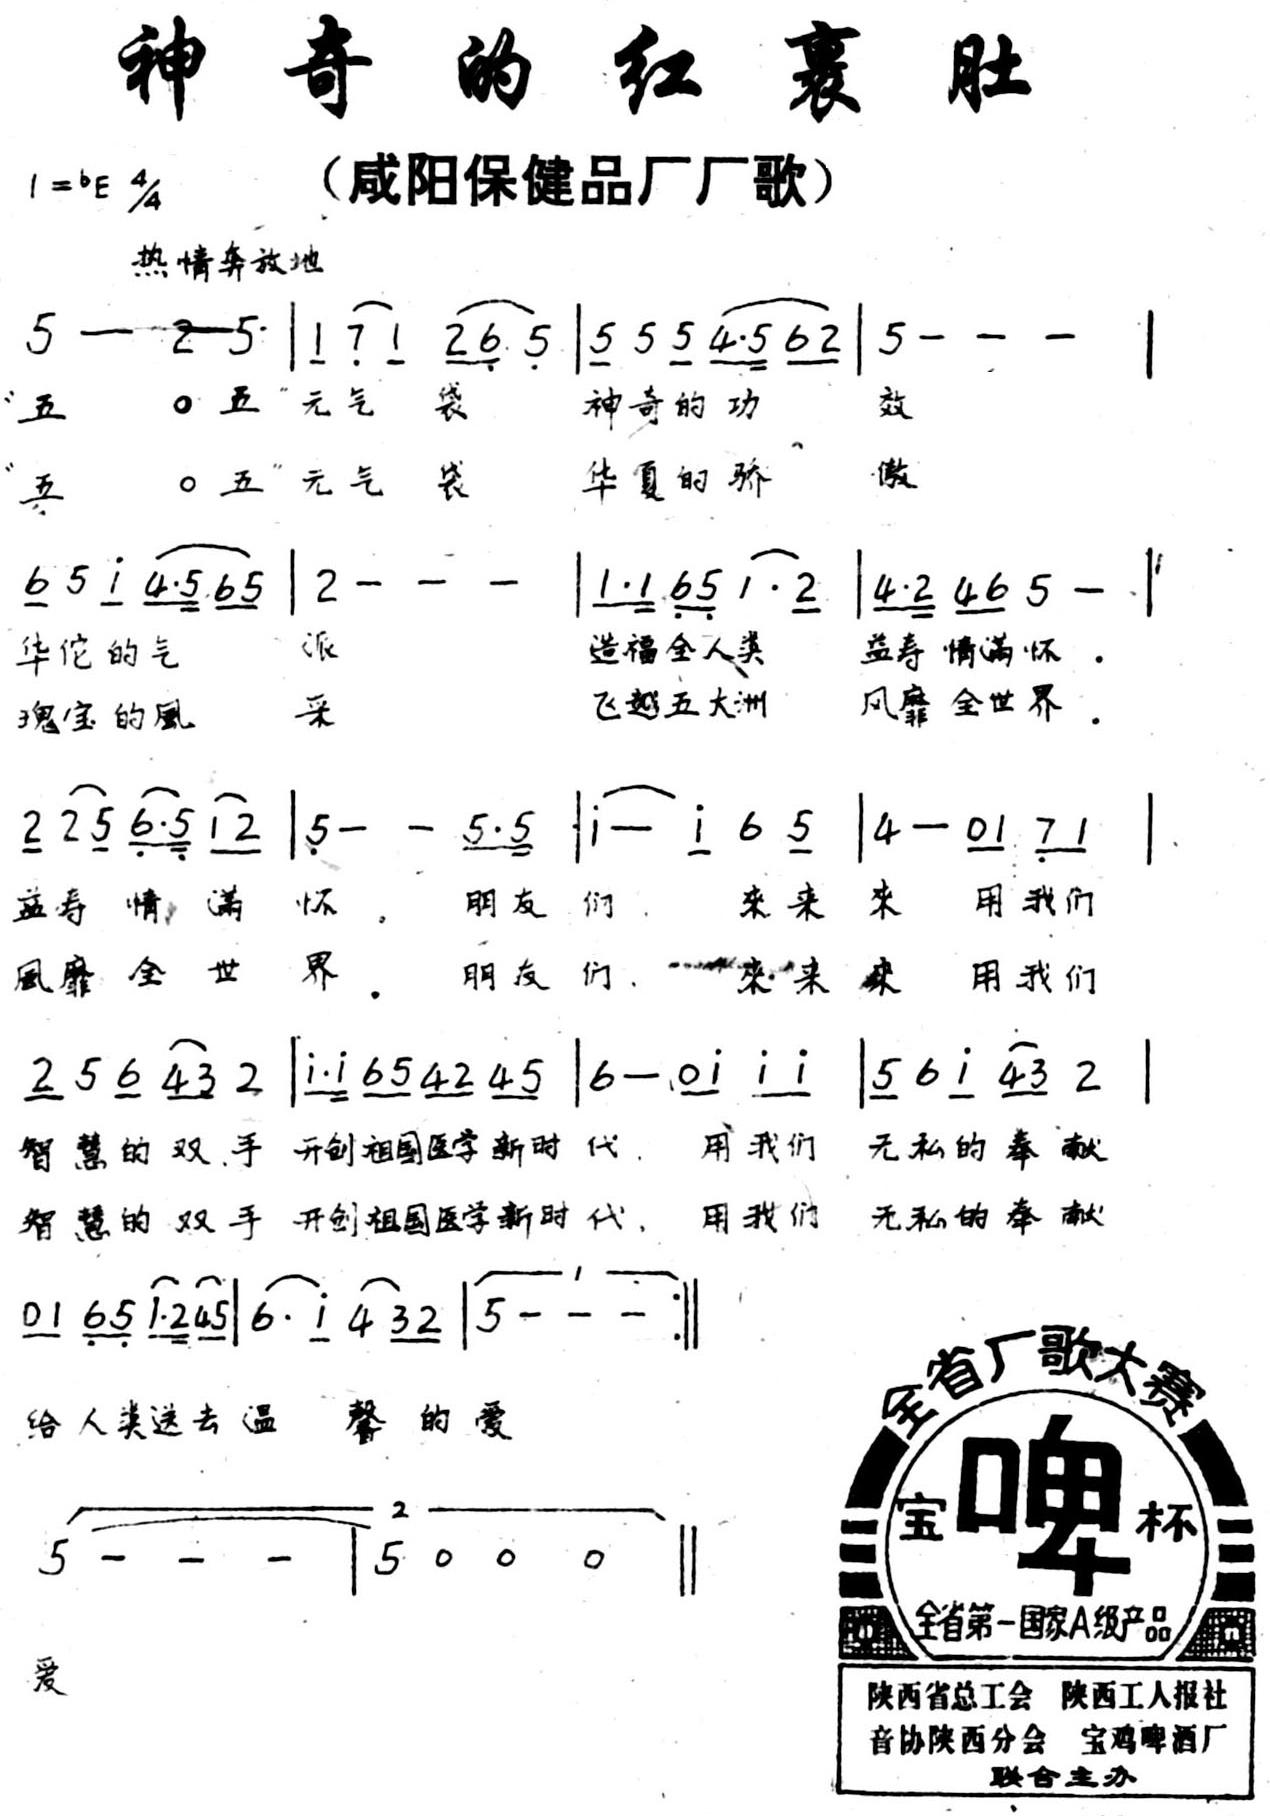 神奇的红裹肚
(咸阳保健品厂厂歌)
1=bE 4/4
热情奔放地
5 — 2 5· | 1 7 1 2 6 5 | 5 5 5 4·5 6 2 | 5 - - - |
“五 o 五”元气 袋 神奇的功 效
“五 o 五”元气 袋 华夏的骄 傲
6 5 i 4·5 6 5 | 2 - - - | 1·1 6 5 1·2 | 4·2 4 6 5 - |
华佗的气 派 造福全人类 益寿情满怀.
瑰宝的風 采 飞越五大洲 风靡全世界.
2 2 5 6·5 1 2 | 5 - - 5·5 | i - i 6 5 | 4 - 0 1 7 1 |
益寿情满怀. 朋友们. 來来來 用我们
風靡全世界. 朋友们. 來来來 用我们
2 5 6 4 3 2 | i·i 6 5 4 2 4 5 | 6 - 0 i i i | 5 6 i 4 3 2 |
智慧的双手 开创祖国医学新时代. 用我们 无私的奉献
智慧的双手 开创祖国医学新时代. 用我们 无私的奉献
0 1 6 5 1·2 4 5 | 6· i 4 3 2 | 1 5 - - - :||
给人类送去温馨的爱
2
5 - - - | 5 0 0 0 ||
爱
全省厂歌大赛
宝啤杯
全省第一国家A级产品
陕西省总工会 陕西工人报社
音协陕西分会 宝鸡啤酒厂
联合主办